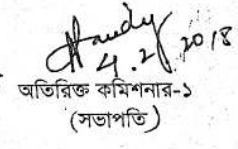 4.2.2018
অতিরিক্ত কমিশনার-১
(সভাপতি)